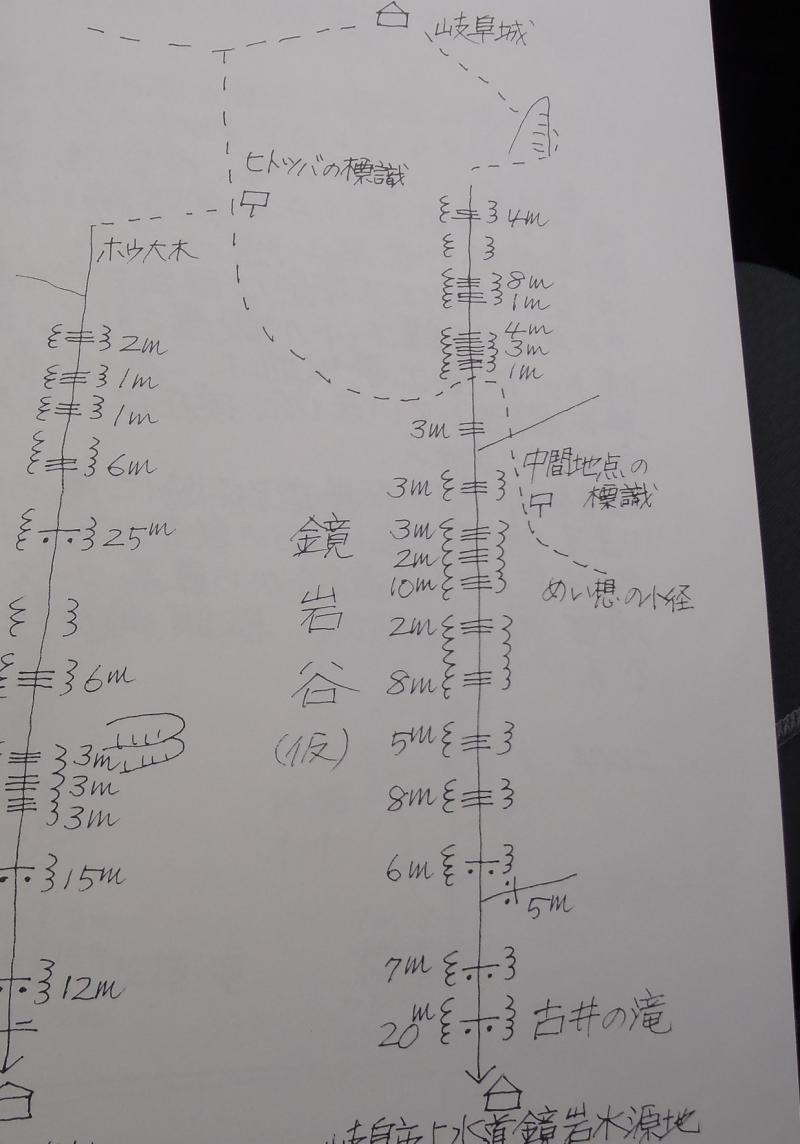 岐阜城
ヒトツバの標識
ホウ大木
4m
8m
1m
4m
3m
1m
3m
中間地点の
標識
3m
3m
2m
10m
めい想の小径
2m
8m
5m
8m
6m
5m
7m
20m
古井の滝
岐阜市上水道鏡岩水源地
鏡
岩
谷
(仮)
2m
1m
1m
6m
25m
6m
3m
3m
3m
15m
12m